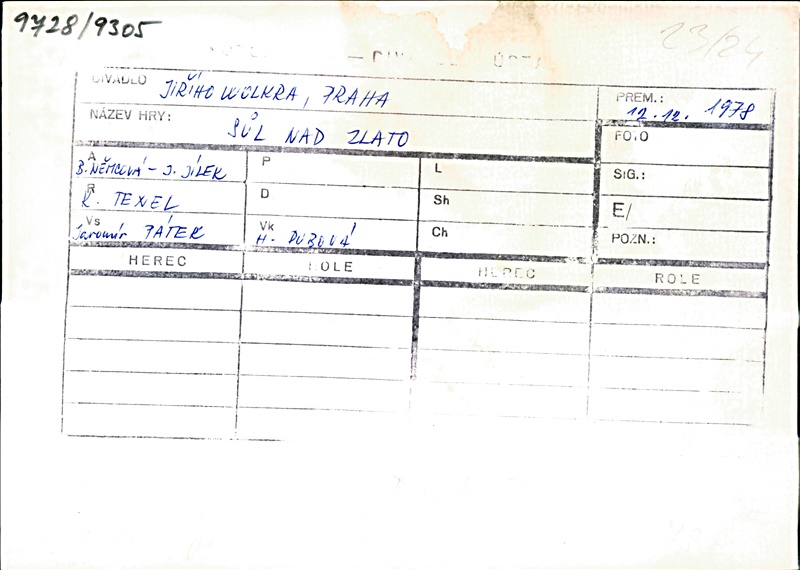 9728/9305
23/24
DIVADLO JIŘÍHO WOLKRA, PRAHA
PREM.: 12.12. 1978
NÁZEV HRY: SŮL NAD ZLATO
FOTO
A B. NĚMCOVÁ - J. JÍLEK
P
L
SIG.:
R K. TEXEL
D
Sh
E/
Vs Jaromír PÁTEK
Vk H. DUBOVÁ
Ch
POZN.:
HEREC ROLE HEREC ROLE